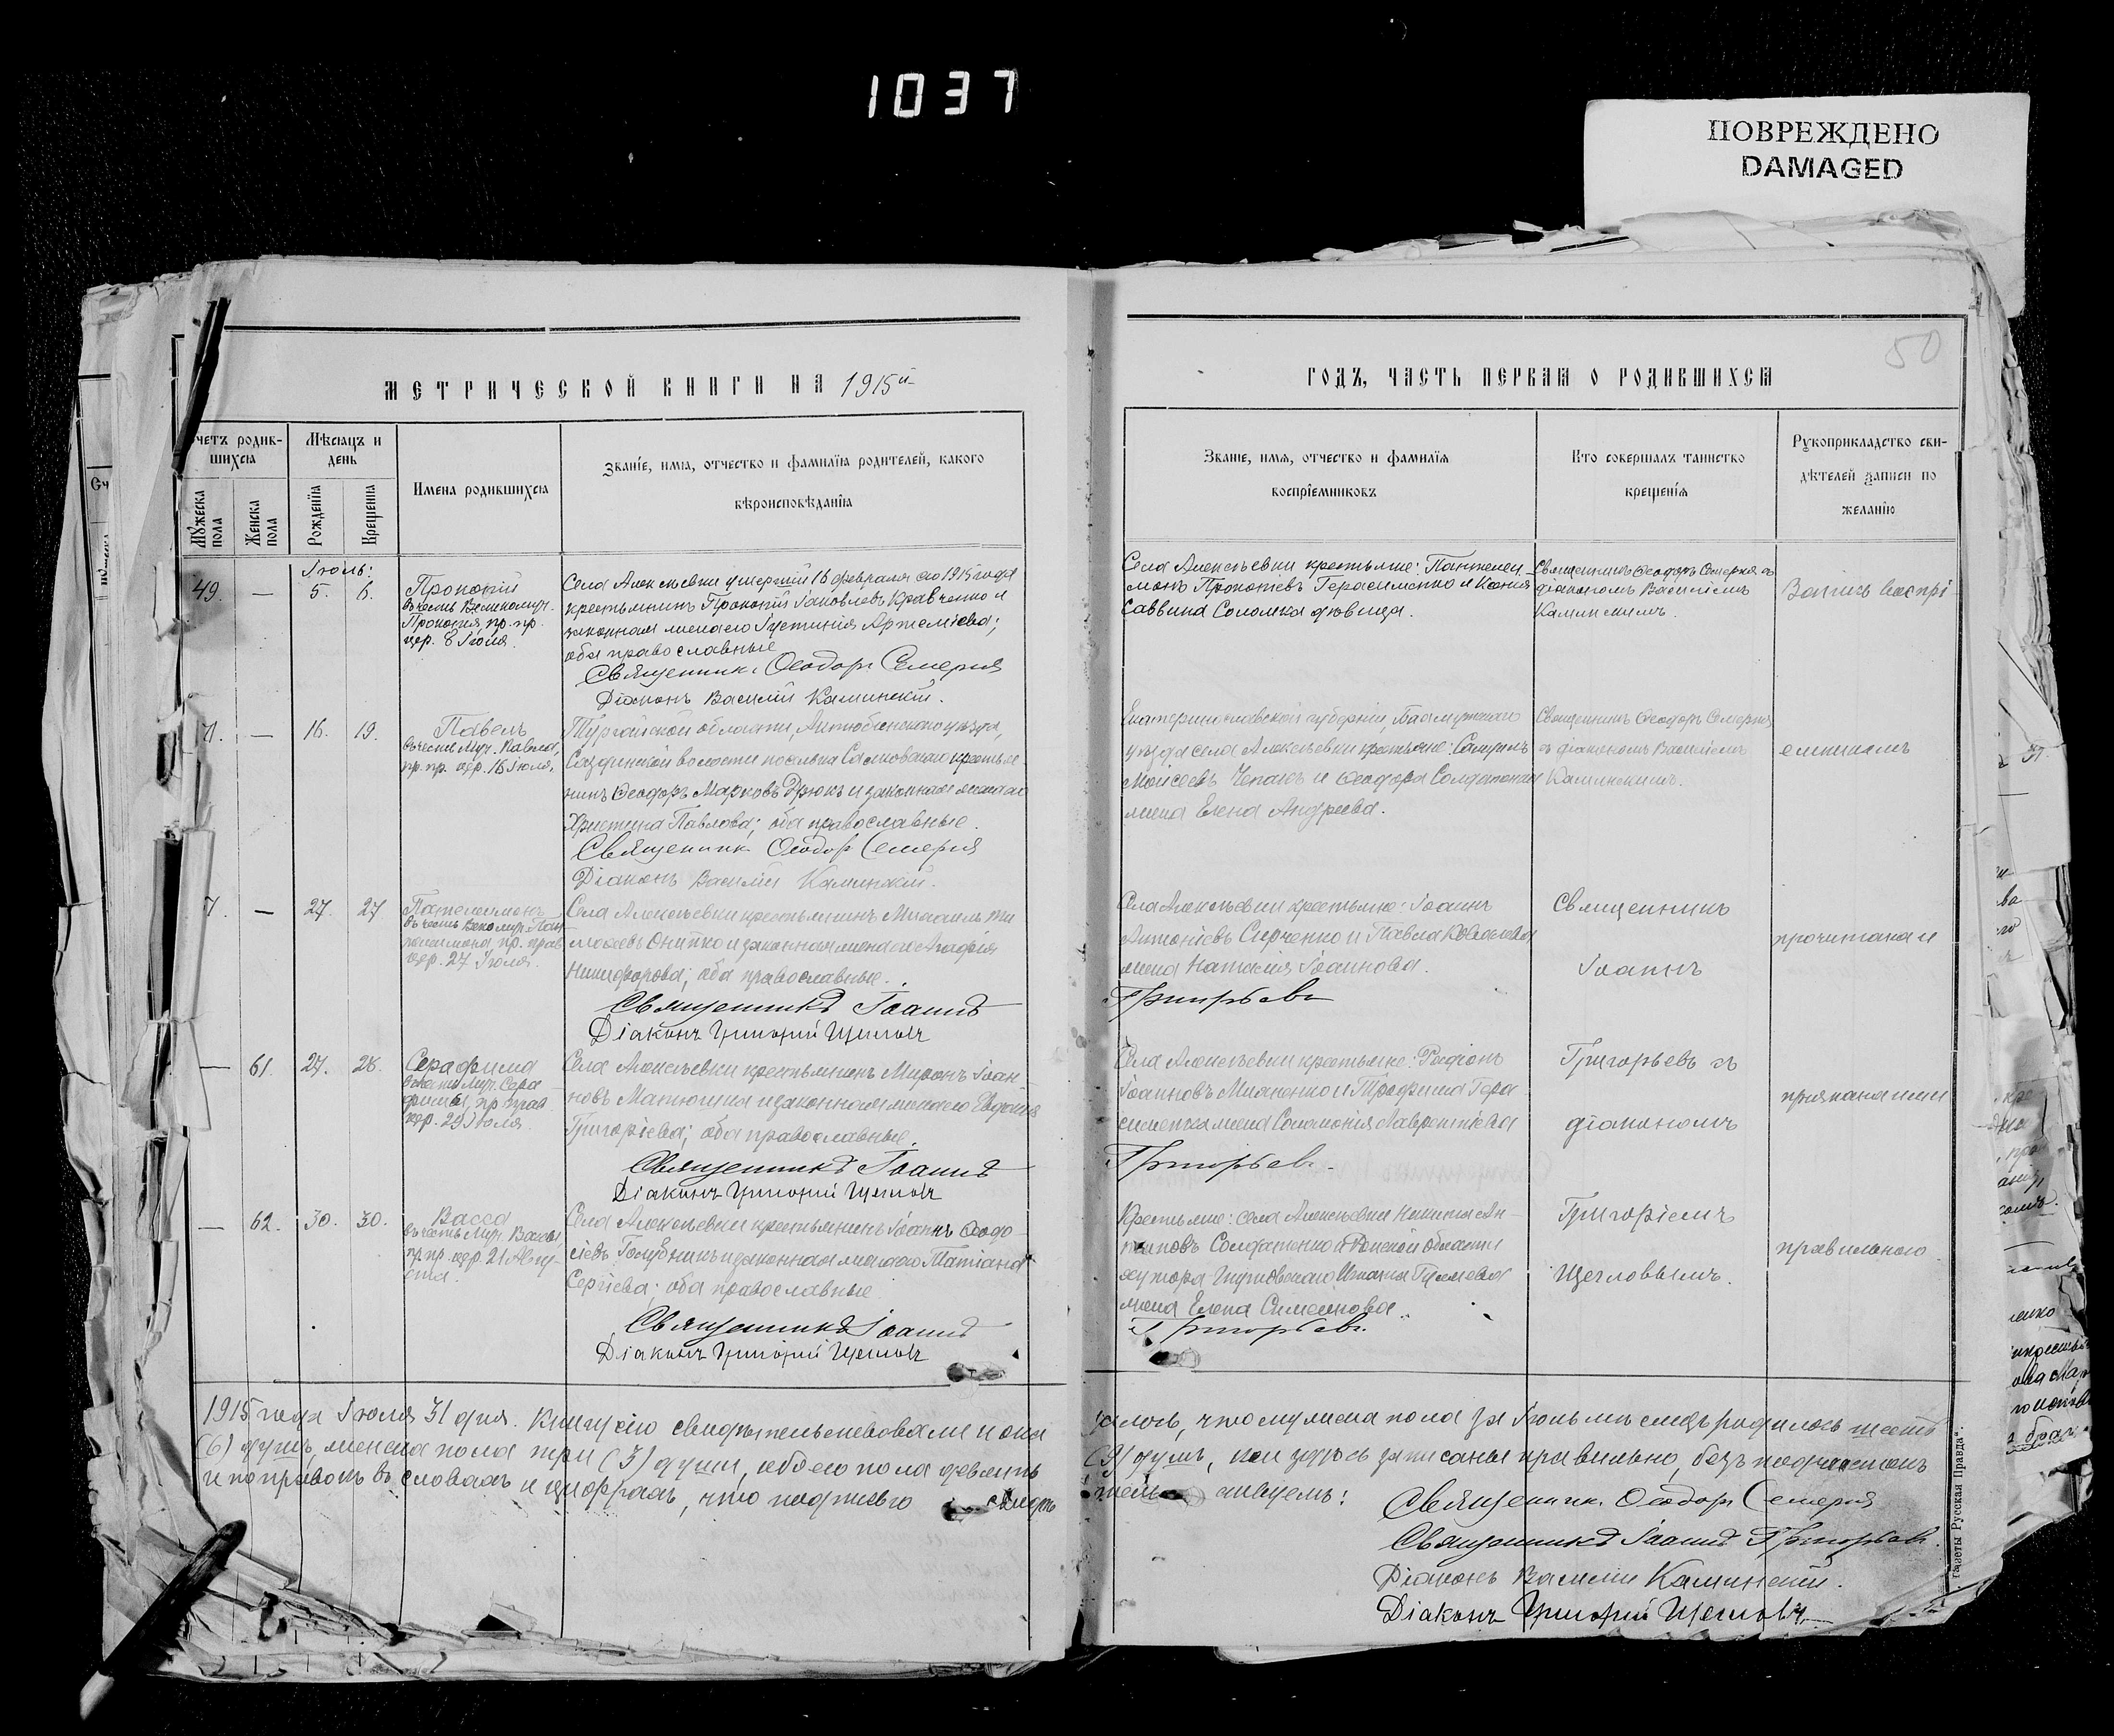 1037
ПОВРЕЖДЕНО
DAMAGED
50
МЕТРИЧЕСКОЙ КНИГИ НА 1915й
четъ родив-
шихся
Мѣсяцъ и
день
Мужеска
пола
Женска
пола
Рожденія
Крещенія
Имена родившихся
Званіе, имя, отчество и фамилія родителей, какого
вѣроисповѣданія
Іюль:
49. — 5. 6.
Прокопій
въ честь Великомуч.
Прокопія пр. пр.
цер. 8 Іюля.
Села Алексѣевки умершій 16 февраля 1915 года
крестьянинъ Прокопій Іаковлевъ Кравченко и
законная жена его Іустинія Артеміева;
оба православные
Священник Ѳеодоръ Семерня
Діаконъ Василій Каминскій.
— 16. 19.
Павелъ
въ честь Муч. Павла,
пр. пр. цер. 16 Іюля.
Тургайской области, Актюбинскаго уѣзда,
волости поселка крестья-
нинъ Ѳеодоръ Марковъ Дрюкъ и законная жена его
Христина Павлова; оба православные.
Священник Ѳеодоръ Семерня
Діаконъ Василій Каминскій.
— 27. 27
Пателеимонъ
въ честь Пан-
телеимона пр. прав
цер. 27 Іюля.
Села Алексѣевки крестьянинъ Михаилъ Ти
моѳеевъ Онипко и законная жена его Агафія
Никифорова; оба православные.
Священникъ Іоаннъ
Діаконъ Григорій Щегловъ
— 61. 27. 28.
Серафима
въ честь Муч. Сера-
фимы, пр. прав
цер. 29 Іюля.
Села Алексѣевки крестьянинъ Миронъ Іоан-
новъ Матюшка и законная жена его Евдокія
Григоріева; оба православные.
Священникъ Іоаннъ
Діаконъ Григорій Щегловъ
— 62. 30. 30.
Васса
въ честь Муч. Вассы
пр. пр. цер. 21 Авгу-
ста.
Села Алексѣевки крестьянинъ Іоаннъ Ѳеодо
сіевъ Голубникъ и законная жена его Татіана
Сергіева; оба православные.
Священникъ Іоаннъ
Діаконъ Григорій Щегловъ
1915 года Іюля 31 дня. Книгу сію свидѣтельствовали и ока
(6) душъ, женска пола три (3) души, обоего пола девять
и поправокъ въ словахъ и цифрахъ, что подписью свидѣ
ГОДЪ, ЧАСТЬ ПЕРВАЯ О РОДИВШИХСЯ
Званіе, имя, отчество и фамилія
воспріемниковъ
Кто совершалъ таинство
крещенія
Рукоприкладство сви-
дѣтелей записи по
желанію
Села Алексѣевки крестьяне: Пантелеи-
монъ Прокопіевъ Герасименко и Ксенія
Саввина Соломка дѣвица.
Священникъ Ѳеодоръ Семерня съ
діакономъ Василіемъ
Каминскимъ.
Запись воспрі-
Екатеринославской губерніи, Бахмутскаго
уѣзда села Алексѣевки крестьяне:
Моисеевъ Чепакъ и Ѳеодора Солдатенка
жена Елена Андреева.
Священникъ Ѳеодоръ Семерня
съ діакономъ Василіемъ
Каминскимъ.
емниками
Села Алексѣевки крестьяне: Іоаннъ
Антоніевъ Сирченко и Павла Ковалева
жена Наталія Іоаннова.
Григорьевъ
Священникъ
Іоаннъ
прочитана и
Села Алексѣевки крестьяне: Родіонъ
Іоанновъ Михненко и Трофима Гера
сименка жена Соломонія Лаврентіева
Григорьевъ.
Григорьевъ съ
діакономъ
признана ими
Крестьяне: села Алексѣевки Никита Ан-
типовъ Солдатенко и Донской области
хутора
жена Елена Симеонова.
Григорьевъ.
Григоріемъ
Щегловымъ.
правильною
залось, что мужеска пола за Іюль мѣсяцъ родилось шесть
(9) душъ, кои здѣсь записаны правильно, безъ подчистокъ
тельствуемъ:
Священник Ѳеодоръ Семерня
Священникъ Іоаннъ Григорьевъ.
Діаконъ Василій Каминскій.
Діаконъ Григорій Щегловъ.
газеты Русская Правда".